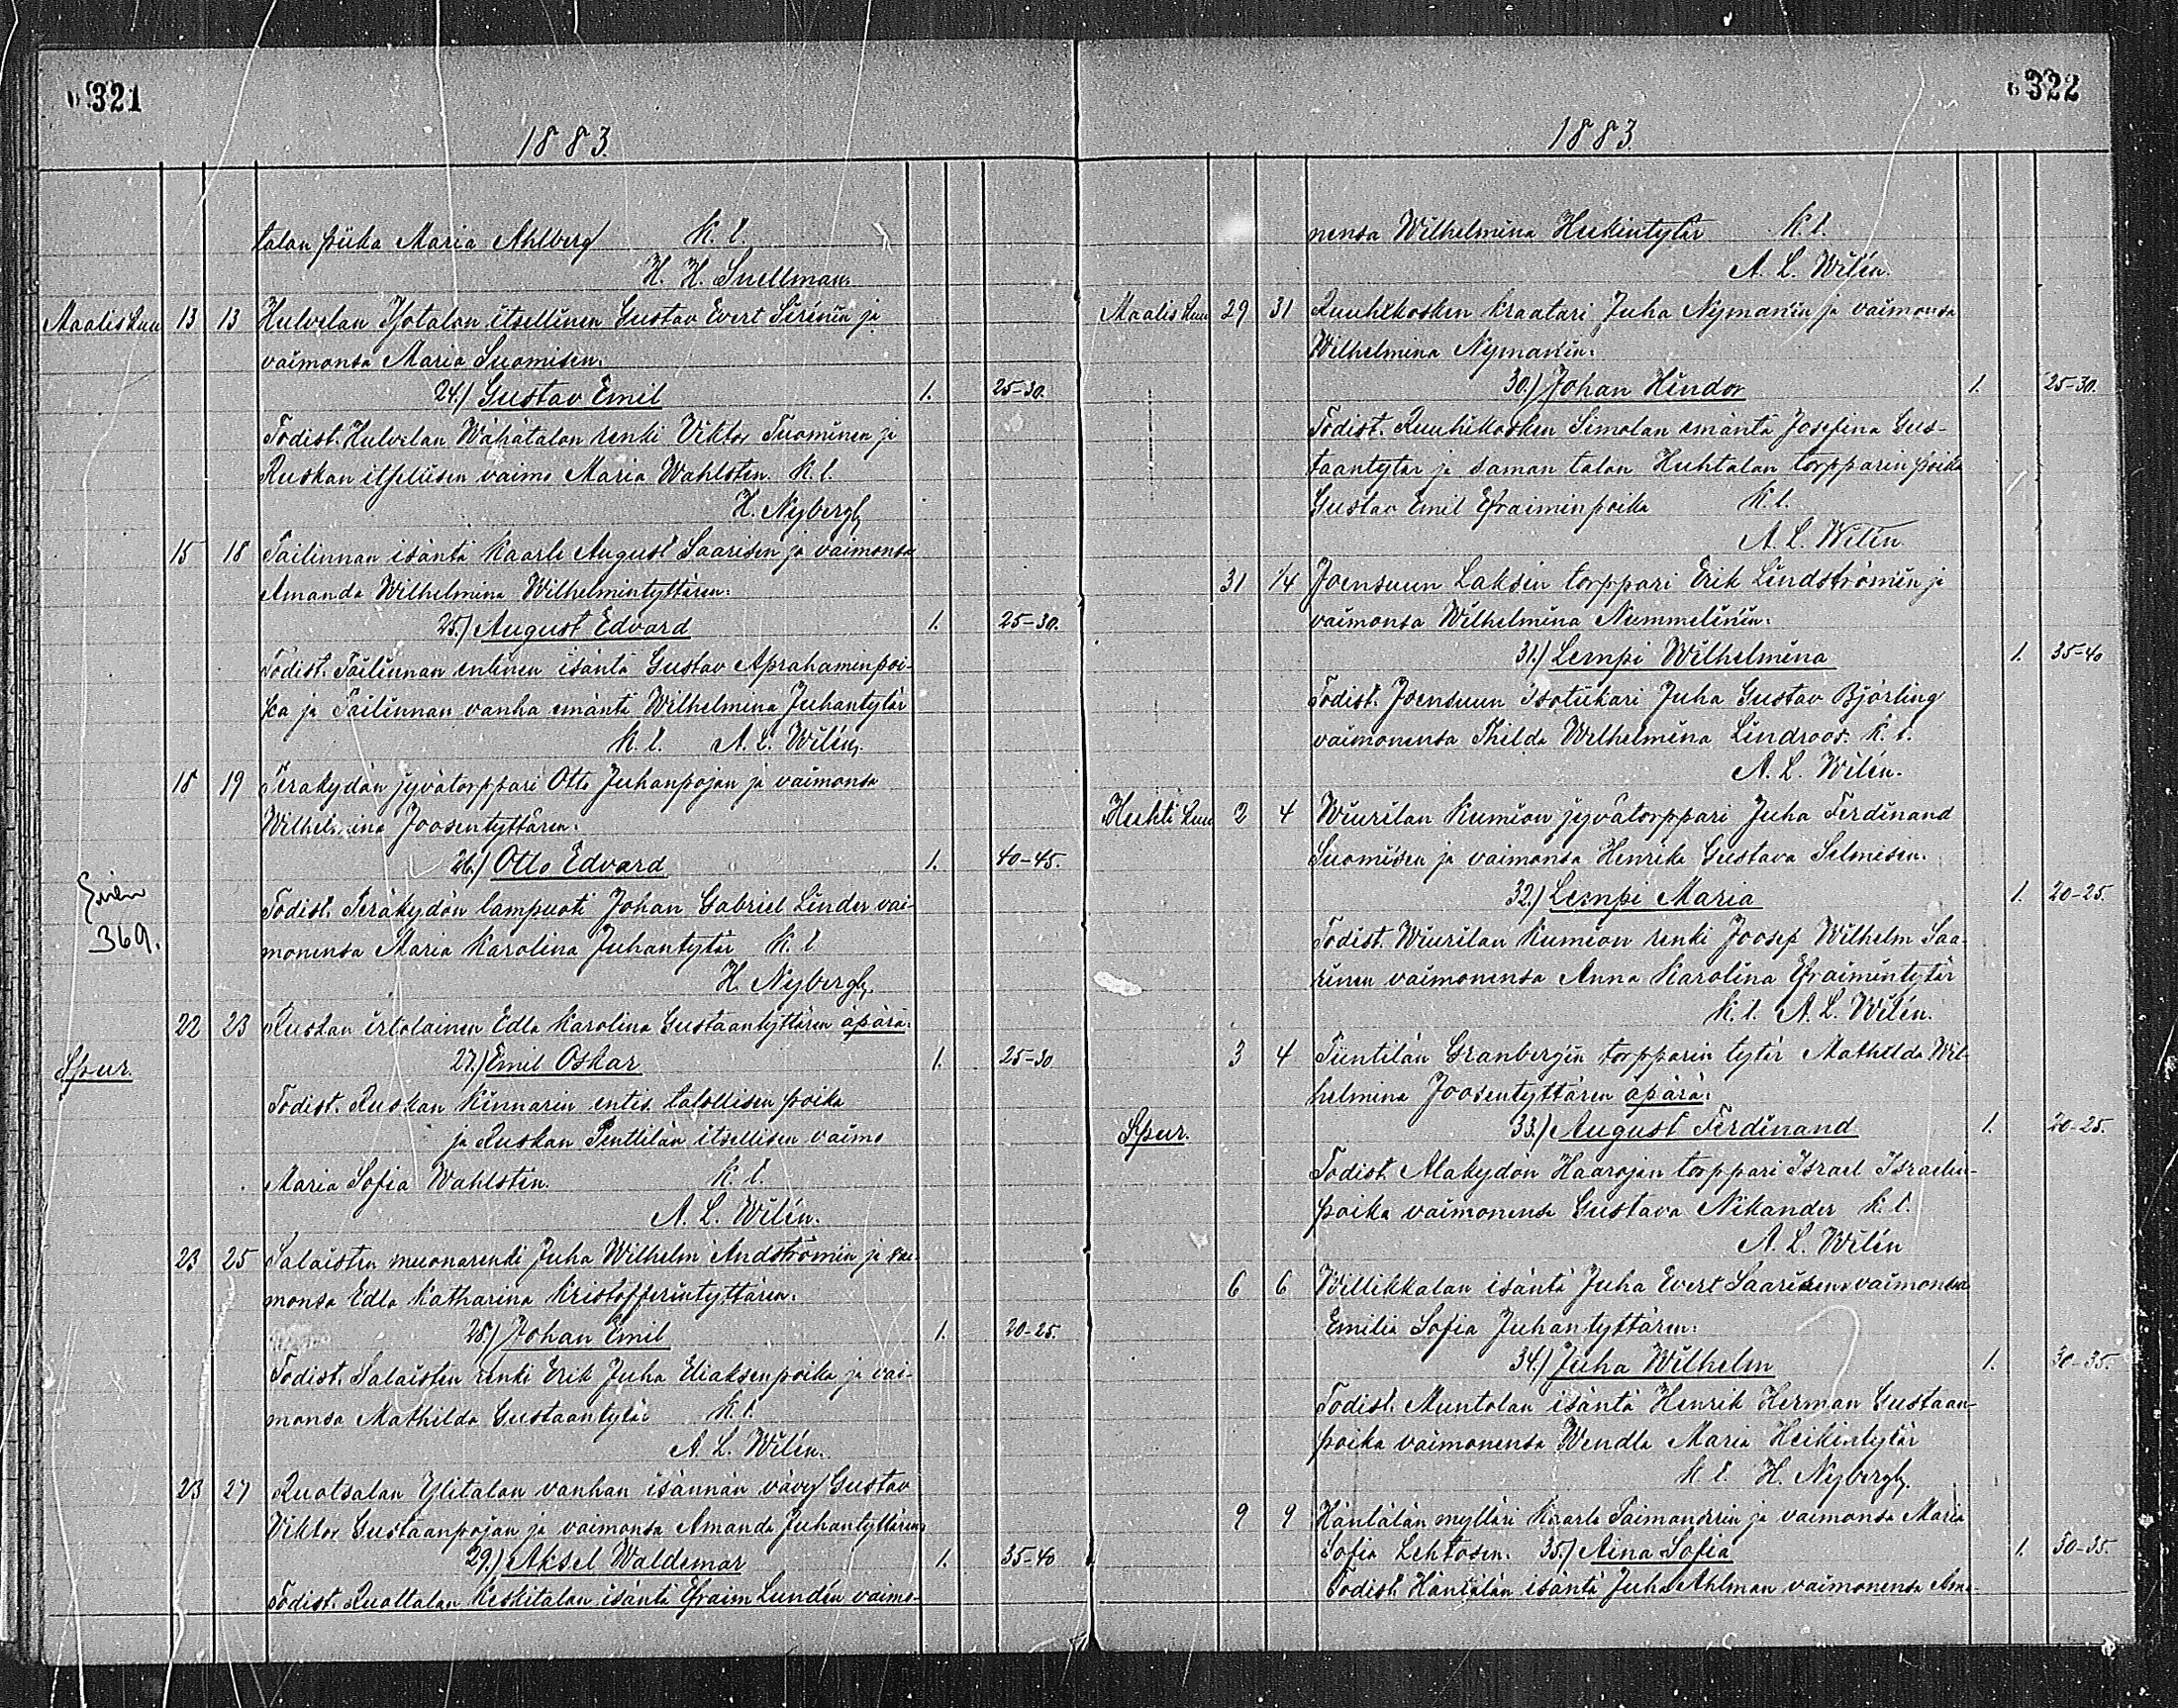 321
1883.
talan piika Maria Ahlberg K. l.
H. H. Snellman.
Maaliskuu 13 13 Hulvelan Isotalon itsellinen Gustav Evert Sirénin ja
vaimonsa Maria Suomisen.
24.) Gustav Emil 1. 25-30.
Todist. Hulvelan Wähätalon renki Viktor Tuominen ja
Ruskan itsellisen vaimo Maria Wahlstén. K. l.
H. Nybergh.
15 18 Pailinnan isäntä Kaarle August Saarisen ja vaimonsa
Amanda Wilhelmina Wilhelmintyttären.
25.) August Edvard 1. 25-30.
Todist. Pailinnan entinen isäntä Gustav Aprahaminpoi-
ka ja Pailinnan vanha emäntä Wilhelmina Juhantytär
K. l. A. L. Wilén.
18 19 Peräkydön jyvätorppari Otto Juhanpojan ja vaimonsa
Wilhelmina Joosentyttären.
26.) Otto Edvard 1. 40-45.
369.
Todist. Peräkydön lampuoti Johan Gabriel Linder vai-
monensa Maria Karolina Juhantytär K. l.
H. Nybergh.
22 23 Ruskan irtolainen Edla Karolina Gustaantyttären äpärä.
Spur. 27.) Emil Oskar 1. 25-30
Todist. Ruskan Kinnarin entis. talollisen poika
ja Ruskan Penttilän itsellisen vaimo
Maria Sofia Wahlstén. K. l.
A. L. Wilén.
23 25 Salaisten muonarenki Juha Wilhelm Andströmin ja vai-
monsa Edla Katharina Kristofferintyttären.
28.) Johan Emil 1. 20-25.
Todist. Salaisten renki Erik Juha Eliaksenpoika ja vai-
monsa Mathilda Gustaantytär K. l.
A. L. Wilén.
23 27 Ruotsalan Ylitalon vanhan isännän vävy Gustav
Viktor Gustaanpojan ja vaimonsa Amanda Juhantyttären
29.) Aksel Waldemar 1. 35-40
Todist. Ruottalan Keskitalon isäntä Efraim Lundén vaimo-
322
1883
nensa Wilhelmina Heikintytär K. l.
A. L. Wilén.
Maaliskuu 29 31 Ruuhikosken kraatari Juha Nyman'in ja vaimonsa
Wilhelmina Nyman'in.
30.) Johan Hindor 1. 25-30.
Todist. Ruuhikosken Simolan emäntä Josefina Gus-
taantytär ja saman talon Huhtalan torpparin poika
Gustav Emil Efraiminpoika K. l.
A. L. Wilén
31 1/4 Joensuun Laksin torppari Erik Lindströmin ja
vaimonsa Wilhelmina Nummelinin.
31.) Lempi Wilhelmina 1. 35-40
Todist. Joensuun Isotiikari Juha Gustav Björling
vaimonensa Thilda Wilhelmina Lindroos. K. l.
A. L. Wilén.
Huhtikuu 2 4 Wiurilan Kumion jyvätorppari Juha Ferdinand
Suomisen ja vaimonsa Henrika Gustava Selmisen.
32.) Lempi Maria 1. 20-25.
Todist. Wiurilan Kumion renki Joosef Wilhelm Saa-
rinen vaimonensa Anna Karolina Efraimintytär
K. l. A. L. Wilén.
3 4 Tiintilän Granbergin torpparin tytär Mathilda Wil-
helmina Joosentyttären äpärä.
Spur. 33.) August Ferdinand 1. 20-25.
Todist. Alakydön Haarojan torppari Israel Israelin-
poika vaimonensa Gustava Nikander K. l.
A. L. Wilén
6 6 Willikkalan isäntä Juha Evert Saarisen vaimonsa
Emilia Sofia Juhantyttären.
34.) Juha Wilhelm 1. 30-35.
Todist. Muntolan isäntä Henrik Herman Gustaan-
poika vaimonensa Wendla Maria Heikintytär
K. l. H. Nybergh.
9 9 Häntälän mylläri Kaarle Taimanderin ja vaimonsa Maria
Sofia Lehtosen. 35.) Aina Sofia 1. 30-35.
Todist. Häntälän isäntä Juha Ahlman vaimonensa Ama-